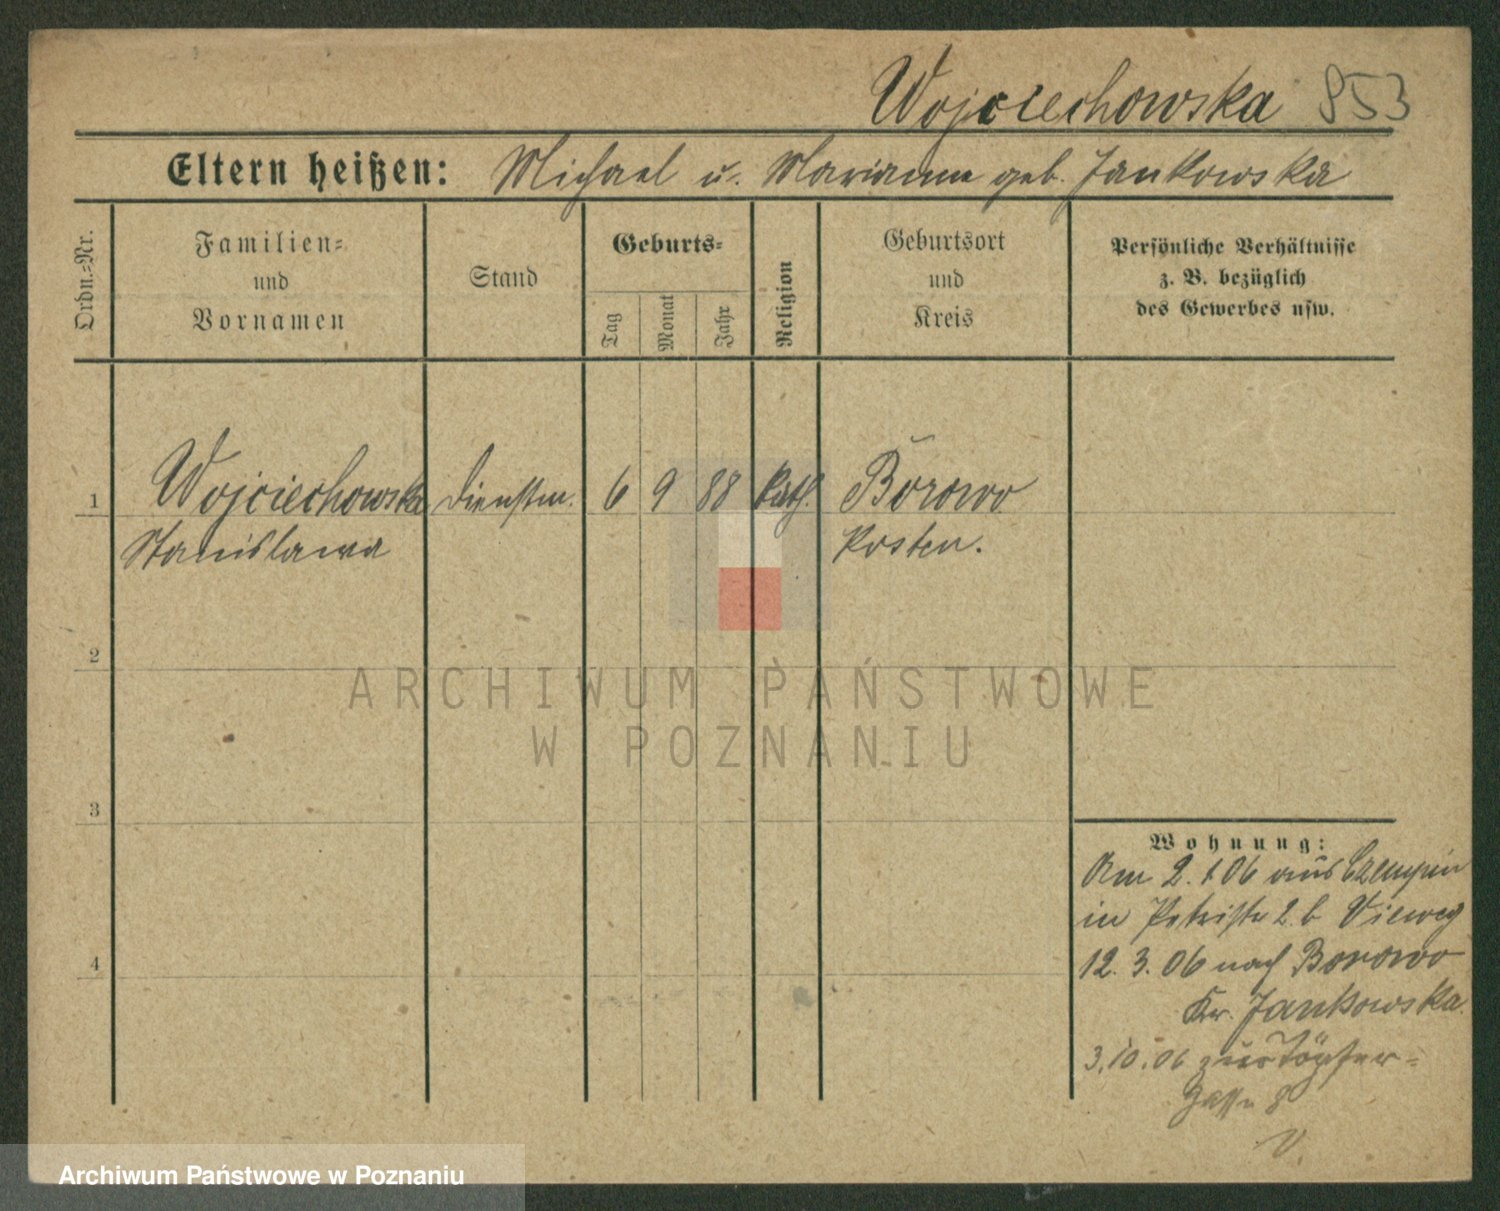 Wojciechowska 853
Eltern heißen: Michael u. Marianna geb. Jankowska
Ordn.=Nr.
Familien=
und
Vornamen
Stand
Geburts=
Tag
Monat
Jahr
Religion
Geburtsort
und
Kreis
Persönliche Verhältnisse
z. B. bezüglich
des Gewerbes usw.
1 Wojciechowska Dienstm. 6 9 88 kath. Borowo
Stanislawa Kosten.
2
3
4
Wohnung:
Am 2.1.06 aus Czempin
in Petristr 2.b Vieweg
12.3.06 nach Borowo
Jankowska
3.10.06 Töpfer=
gasse 8
ARCHIWUM PAŃSTWOWE
W POZNANIU
Archiwum Państwowe w Poznaniu